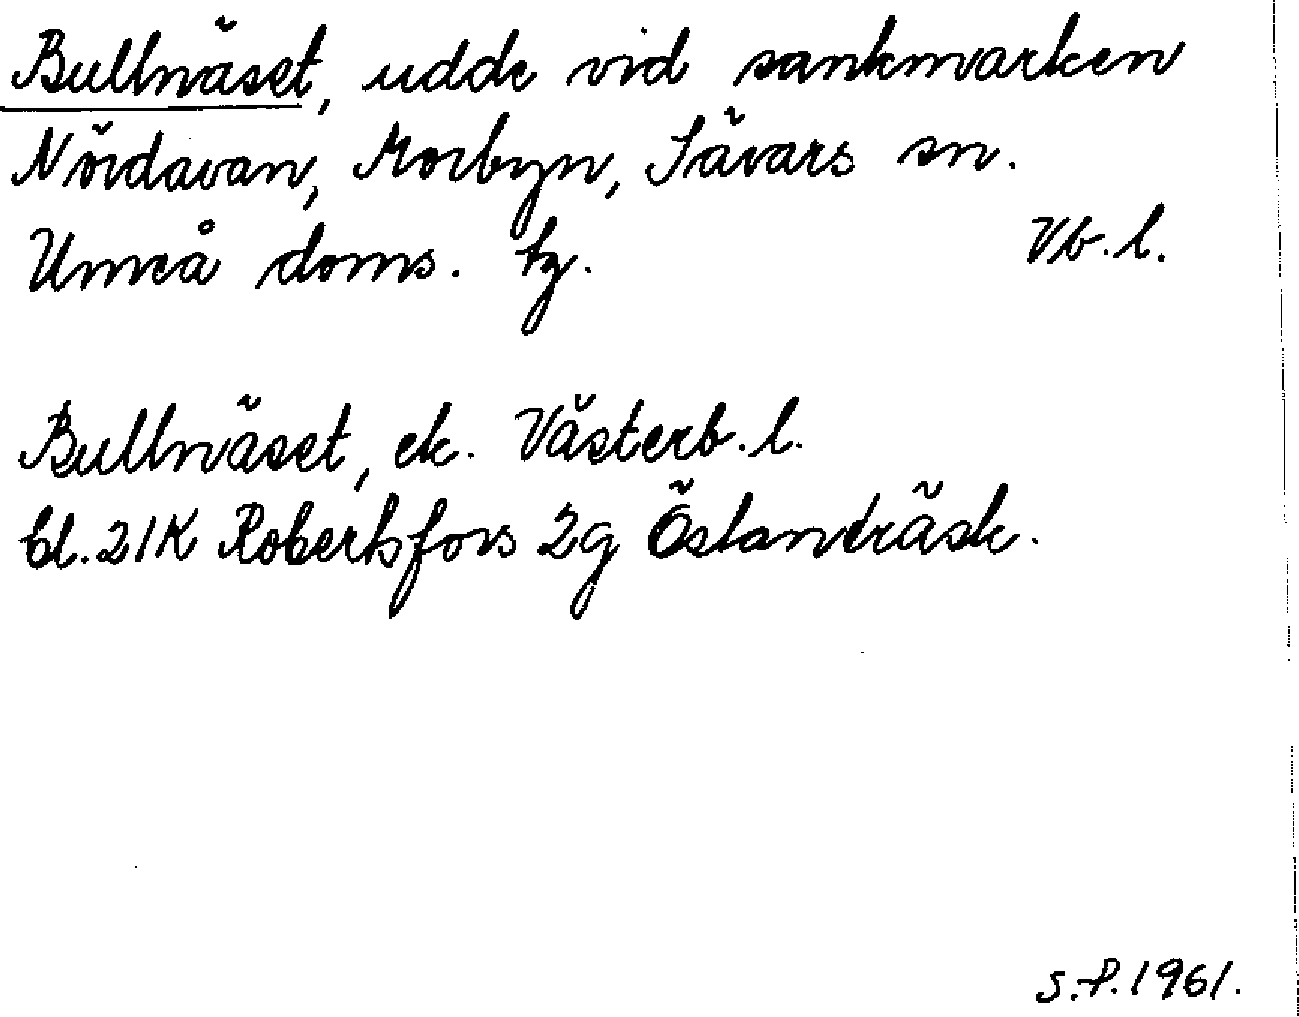 Bullnäset, udde vid sankmarken
Nördavan, Morbyn, Sävars sn.
Umeå doms. tg. Vb. l.
Bullnäset, ek. Västerb. l.
Bl. 21K Robertsfors 2g Östanträsk.
S.P. 1961.